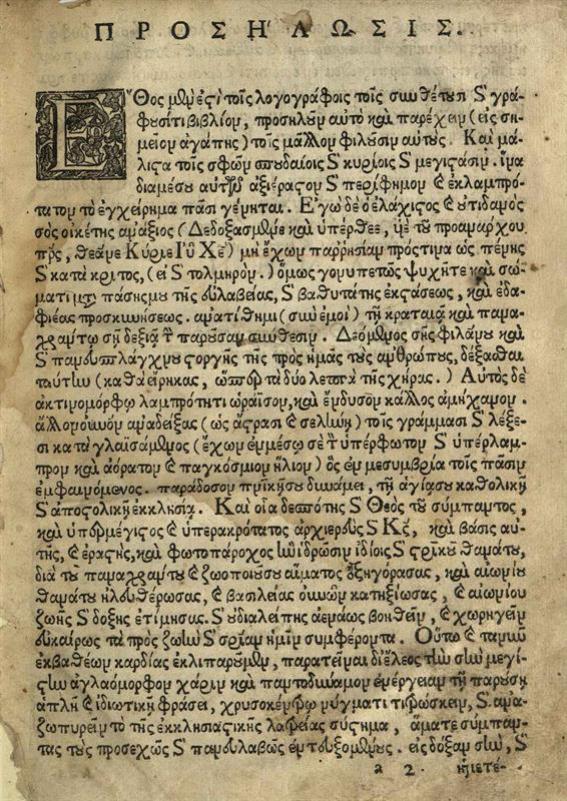 ΠΡΟΣΗΛΩΣΙΣ.
Ἔθος μὲν ἐστὶ τοῖς λογογράφοις τοῖς συνθέτουσι ϗ γρά-
φουσί τι βιβλίον, προσηλοῦν αὐτὸ καὶ παρέχειν (εἰς ση-
μεῖον ἀγάπης) τοῖς μᾶλλον φιλοῦσιν αὐτούς. Καὶ μά-
λιστα τοῖς σφῶν σπουδαίοις ϗ κυρίοις ϗ μεγιστᾶσιν. ἵνα
διαμέσου αὐτῶν ἀξιέραστον ϗ περίφημον ϗ ἐκλαμπρό-
τατον τὸ ἐγχείρημα πᾶσι γένηται. Ἐγὼ δὲ ὁ ἐλάχιστος ϗ οὐτιδαμὸς
σὸς οἰκέτης ἀνάξιος (Δεδοξασμένε καὶ ὑπέρθεε, υἱὲ τοῦ προανάρχου
πρς, θεάνε Κύριε Ἰῦ Χὲ) μὴ ἔχων παρρησίαν πρόστιμα ὡς πένης
ϗ κατάκριτος, (εἰ ϗ τολμηρὸν.) ὅμως γονυπετῶς ψυχῇτε καὶ σώ-
ματι μετὰ πάσης μου τῆς εὐλαβείας, ϗ βαθυτάτης ἐκστάσεως, καὶ ἐδα-
φιέας προσκυνήσεως. ἀνατίθημι (σὺν ἐμοὶ) τῇ κραταιᾷ καὶ πανα-
χράντῳ σῇ δεξιᾷ τὴν παροῦσαν σύνθεσιν. Δεόμενος σῆς φιλάνου καὶ
ϗ πανευσπλάγχνου στοργῆς τῆς πρὸς ἡμᾶς τοὺς ἀνθρώπους, δέξασθαι
ταύτην (καθὰ εἴρηκας, ὥσπερ τὰ δύο λεπτὰ τῆς χήρας.) Αὐτὸς δὲ
ἀκτινομόρφῳ λαμπρότητι ὡράϊσον, καὶ ἔνδυσον κάλλος ἀμήχανον.
ἀλλοπουὸν ἀναδείξας (ὡς ἄστρασι ϗ σελήνην) τοῖς γράμμασι ϗ λέξε-
σι καταγλαϊσάμενος (ἔχων ἐν μέσῳ σὲ τὸν ὑπέρφωτον ϗ ὑπέρλαμ-
προν καὶ ἀόρατον ϗ παγκόσμιον ἥλιον) ὃς ἐν μεσυμβρία τοῖς πᾶσιν
ἐμφαινόμενος. παράδοσον πηκησου δυνάμει, τῇ ἁγίᾳσου καθολικῇ
ϗ ἀποστολικῇ ἐκκλησίᾳ. Καὶ οἷα δεσπότης ϗ Θεὸς τοῦ σύμπαντος,
καὶ ὑπέρμέγιστος ϗ ὑπερακρότατος ἀρχιερεὺς ϗ Κς, καὶ βάσις αὐ-
τῆς, ϗ ἐραστὴς, καὶ φωτοπάροχος ἣν ἱδρῶσιν ἰδίοις ϗ στρικοῦ θανάτου,
διὰ τοῦ παναχράντου ϗ ζωοποιοῦσου αἵματος ἐξηγόρασας, καὶ αἰωνίου
θανάτου ἠλευθέρωσας, ϗ βασιλείας οὐνῶν κατηξίωσας, ϗ αἰωνίου
ζωῆς ϗ δόξης ἐτίμησας. ϗ οὐδιαλείπῃς ἀενάως βοηθεῖν, ϗ χωρηγεῖν
εὐκαίρως τὰ πρὸς ζωὴν ϗ σρίαν ἡμῖν συμφέροντα. Οὕτω ϗ τανῦν
ἐκβαθέων καρδίας ἐκλιπαροῦμεν, παρατεῖναι δι’ ἔλεος τὴν σὴν μεγί-
στην ἀγλαόμορφον χάριν καὶ παντοδύναμον ἐνέργειαν τῇ παρούσῃ
ἁπλῇ ϗ ἰδιωτικῇ φράσει, χρυσοκέντῳ νύγματι τιτρώσκειν, ϗ ἀνα-
ζωπυρεῖν τὸ τῆς ἐκκλησιαστικῆς λατρείας σύστημα, ἅματε σύμπαν-
τας τοὺς προσεχῶς ϗ πανευλαβῶς ἐντευξομένους. εἰς δόξαν σὴν, ϗ
a 2 ἡμετέ-